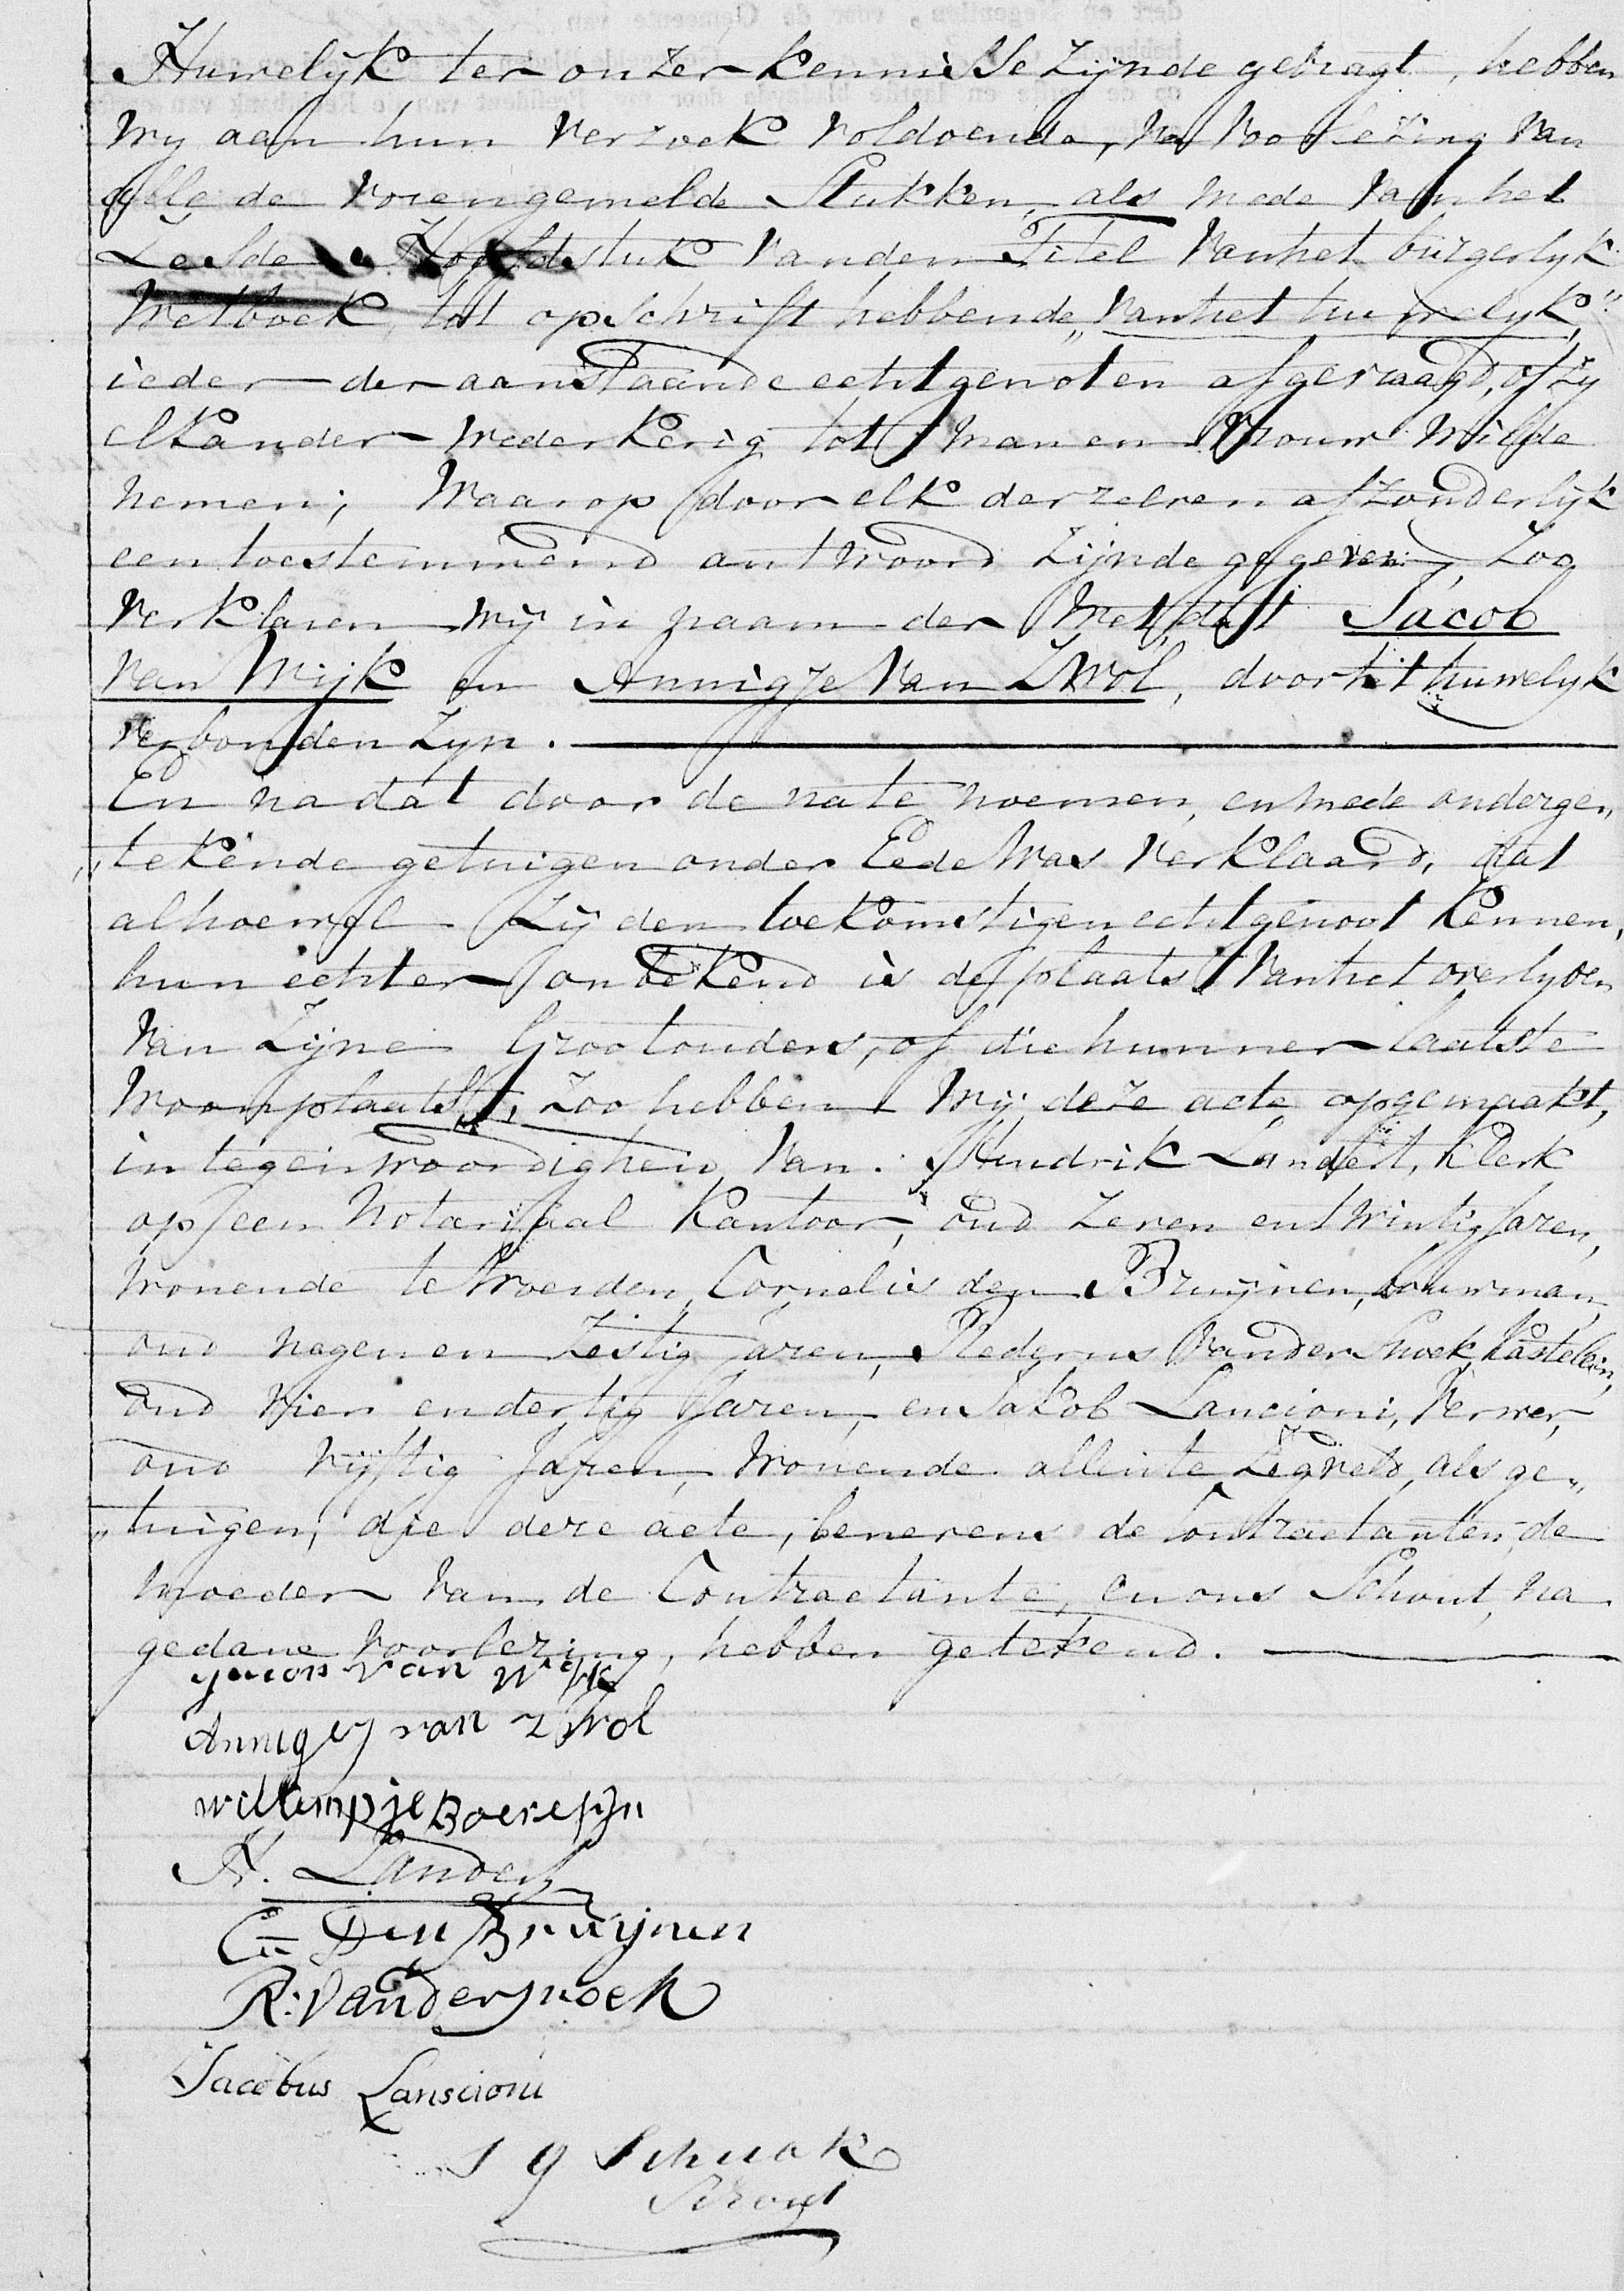 Huwelijk ter onzer kennisse zijnde gebragt, hebben
wy aan hun verzoek voldoende, na voorlezing van
alle de vorengemelde Stukken, als mede van het
Zesde Hoofdstuk van den Titel van het burgerlyk
Wetboek, tot opschrift hebbende „van het huwelyk,"
ieder der aanstaande echtgenoten afgevraagd, of zy
elkander wederkerig tot man en vrouw wilde
nemen; waarop door elk derzelven afzonderlijk
een toestemmend antwoord zijnde gegeven, Zoo
verklaren wij in naam der Wet, dat Jacob
van Wijk en Annigje van Zwol, door het huwelyk
verbonden zyn.
En na dat door de na te noemen, en mede onderge„
„tekende getuigen onder Eede was verklaard, dat
alhoewel zij den toekomstigen echtgenoot kennen,
hun echter onbekend is de plaats van het overlyden
van zijne Grootouders, of die hunner laatste
woonplaats, zoo hebben wij deze acte opgemaakt,
in tegenwoordigheid van Hendrik Landert, Klerk
op een Notariaal Kantoor, oud zeven en twintig Jaren,
wonende te Woerden, Cornelis den Bruijnen, bouwman,
oud negen en zestig Jaren, van der Snoek, Kastelein,
oud vier en dertig Jaren, en Jakob Lancioni, Verwer,
oud vyftig Jaren, wonende allen te Zegveld, als ge„
„tuigen, die deze acte, benevens de Contractanten, de
moeder van de Contractante, en ons Schout, na
gedane voorlezing, hebben getekend.
van Wijk
Annigej van zwol
willempje Boerefyn
H. Landert
C Den Bruijnen
R: Vandersnoek
Jacobus Lanscioni
J G Schuak
Schout